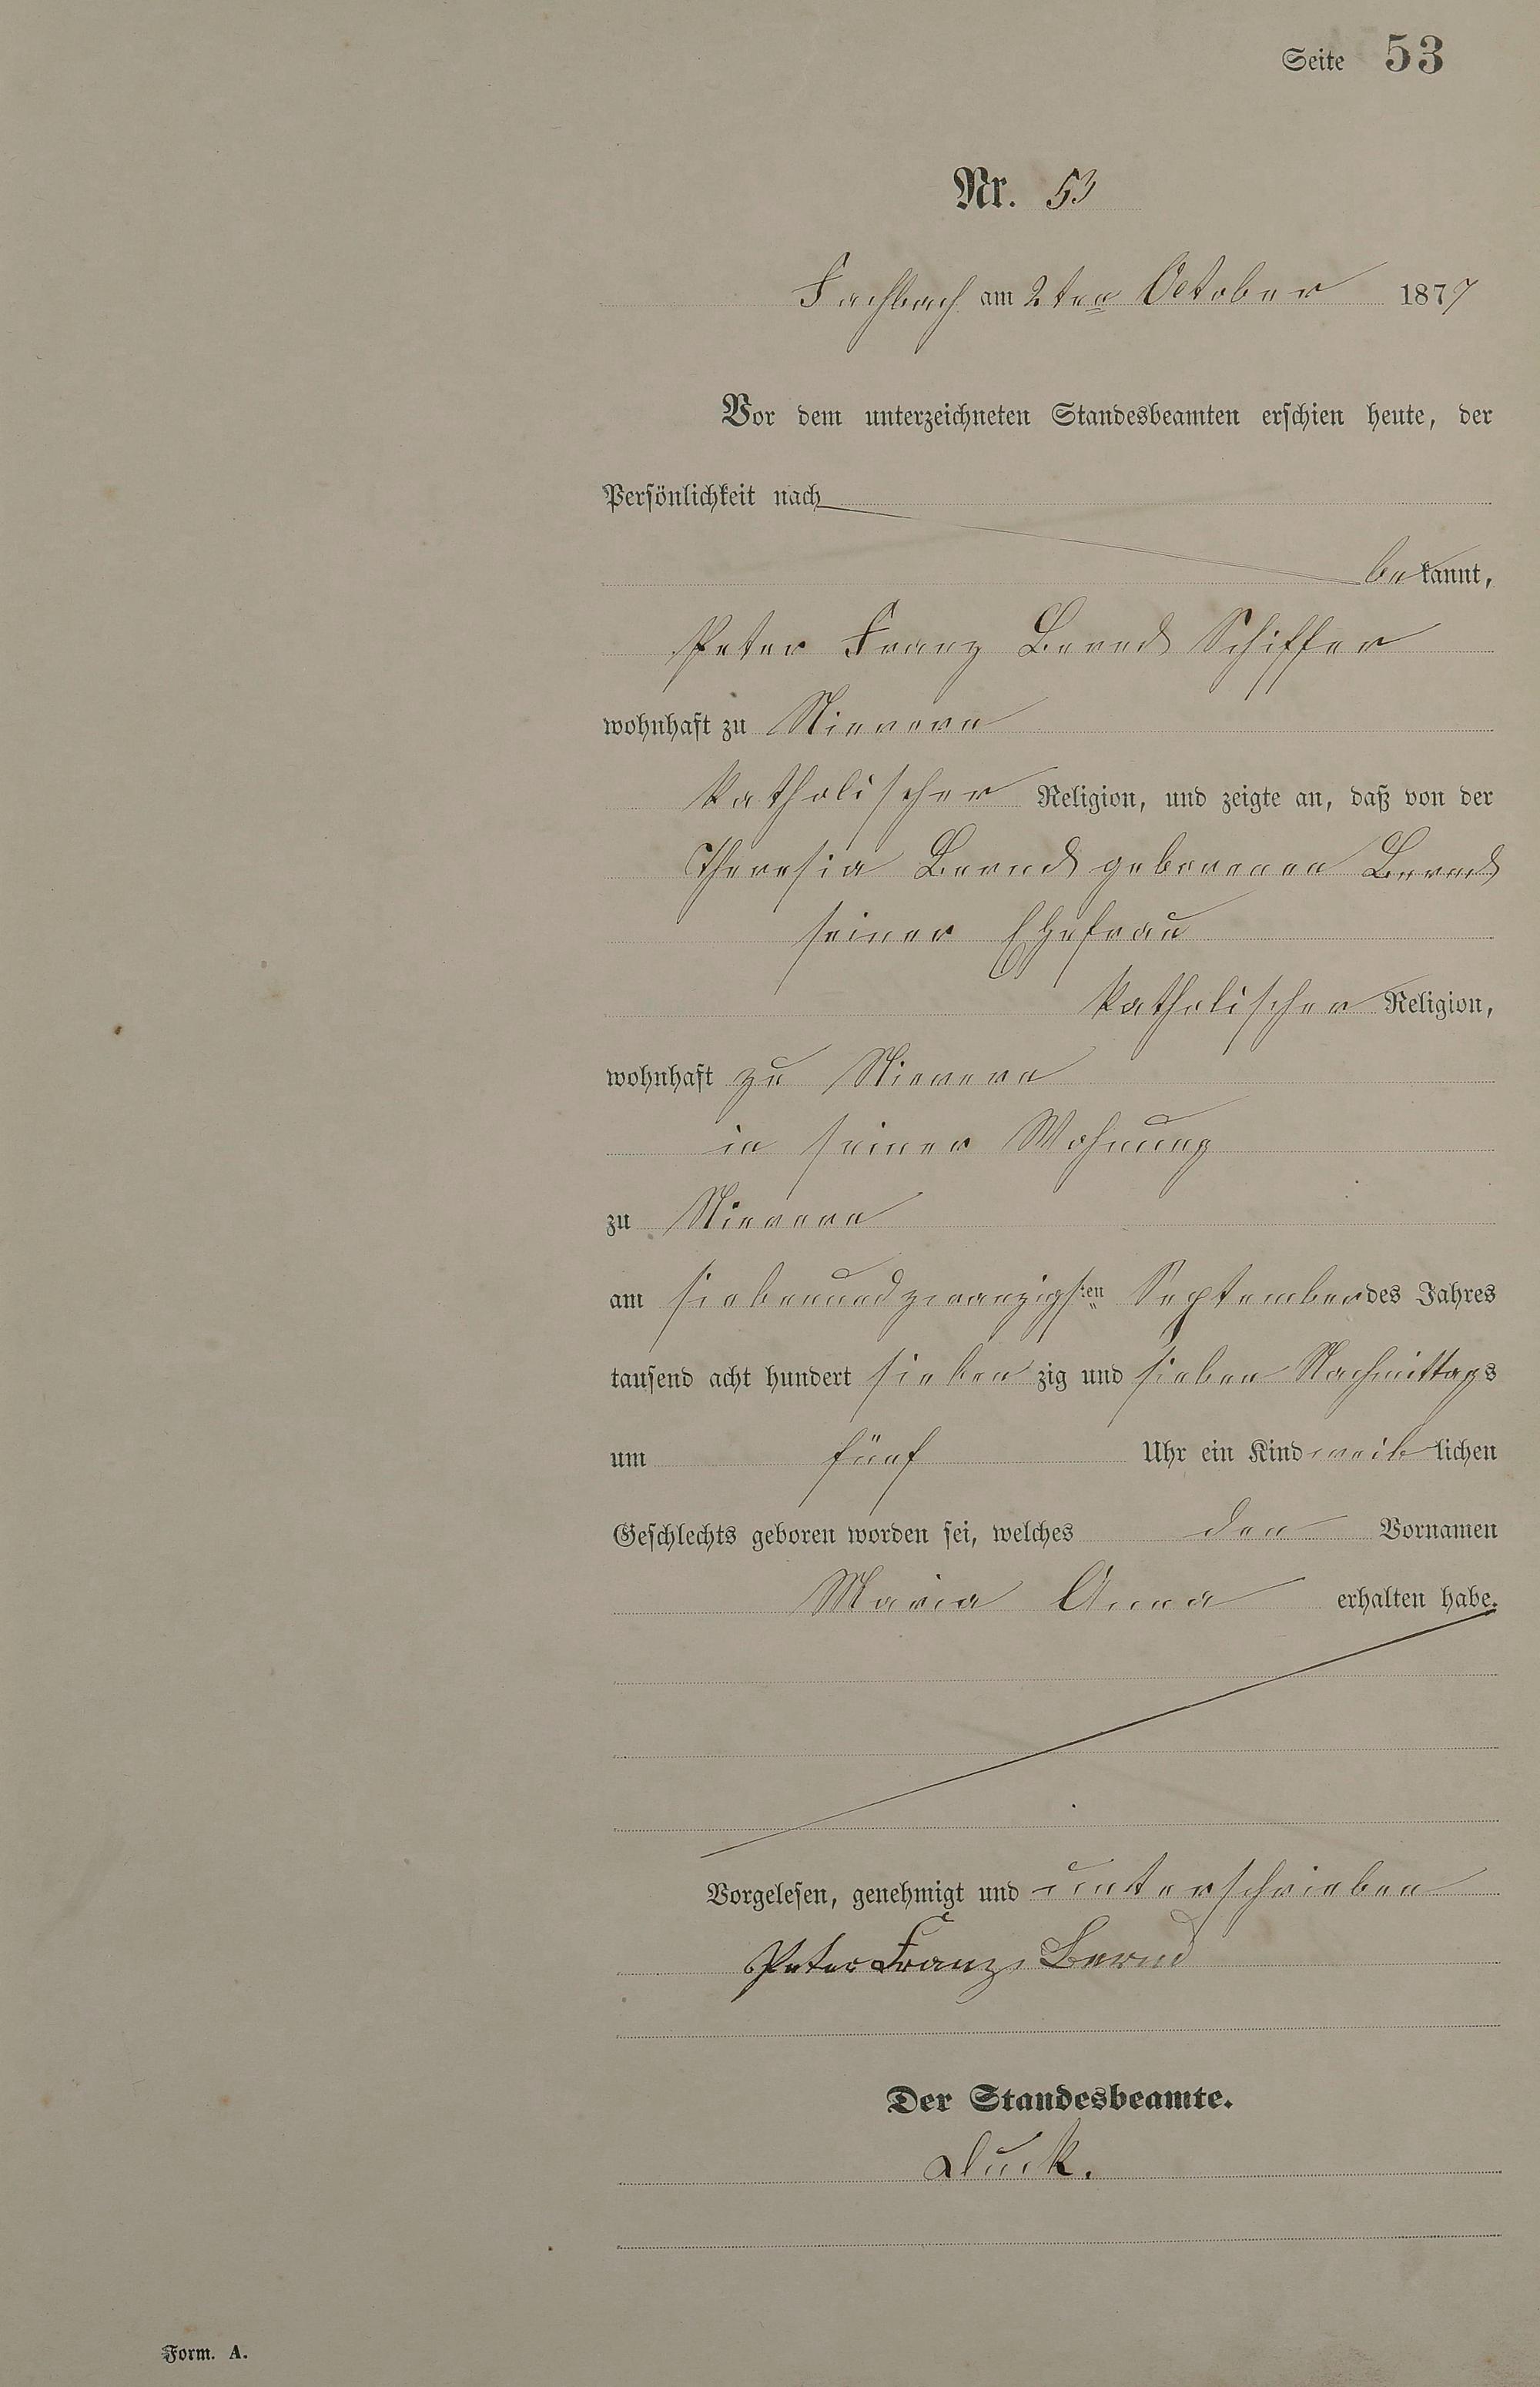 Seite 53
Nr. 53
Fachbach am 2ten October 1877
Vor dem unterzeichneten Standesbeamten erschien heute, der
Persönlichkeit nach
bekannt,
Peter Franz Bernd Schiffer
wohnhaft zu Nievern
katholischer Religion, und zeigte an, daß von der
Theresia Bernd geborenen Bernd
seiner Ehefrau
katholischer Religion,
wohnhaft zu Nievern
in seiner Wohnung
zu Nievern
am siebenundzwanzigsten September des Jahres
tausend acht hundert siebenzig und sieben Nachmittags
um fünf Uhr ein Kind weiblichen
Geschlechts geboren worden sei, welches den Vornamen
Maria Anna erhalten habe.
Vorgelesen, genehmigt und unterschrieben
Peter Franz Bernd
Der Standesbeamte.
Form. A.